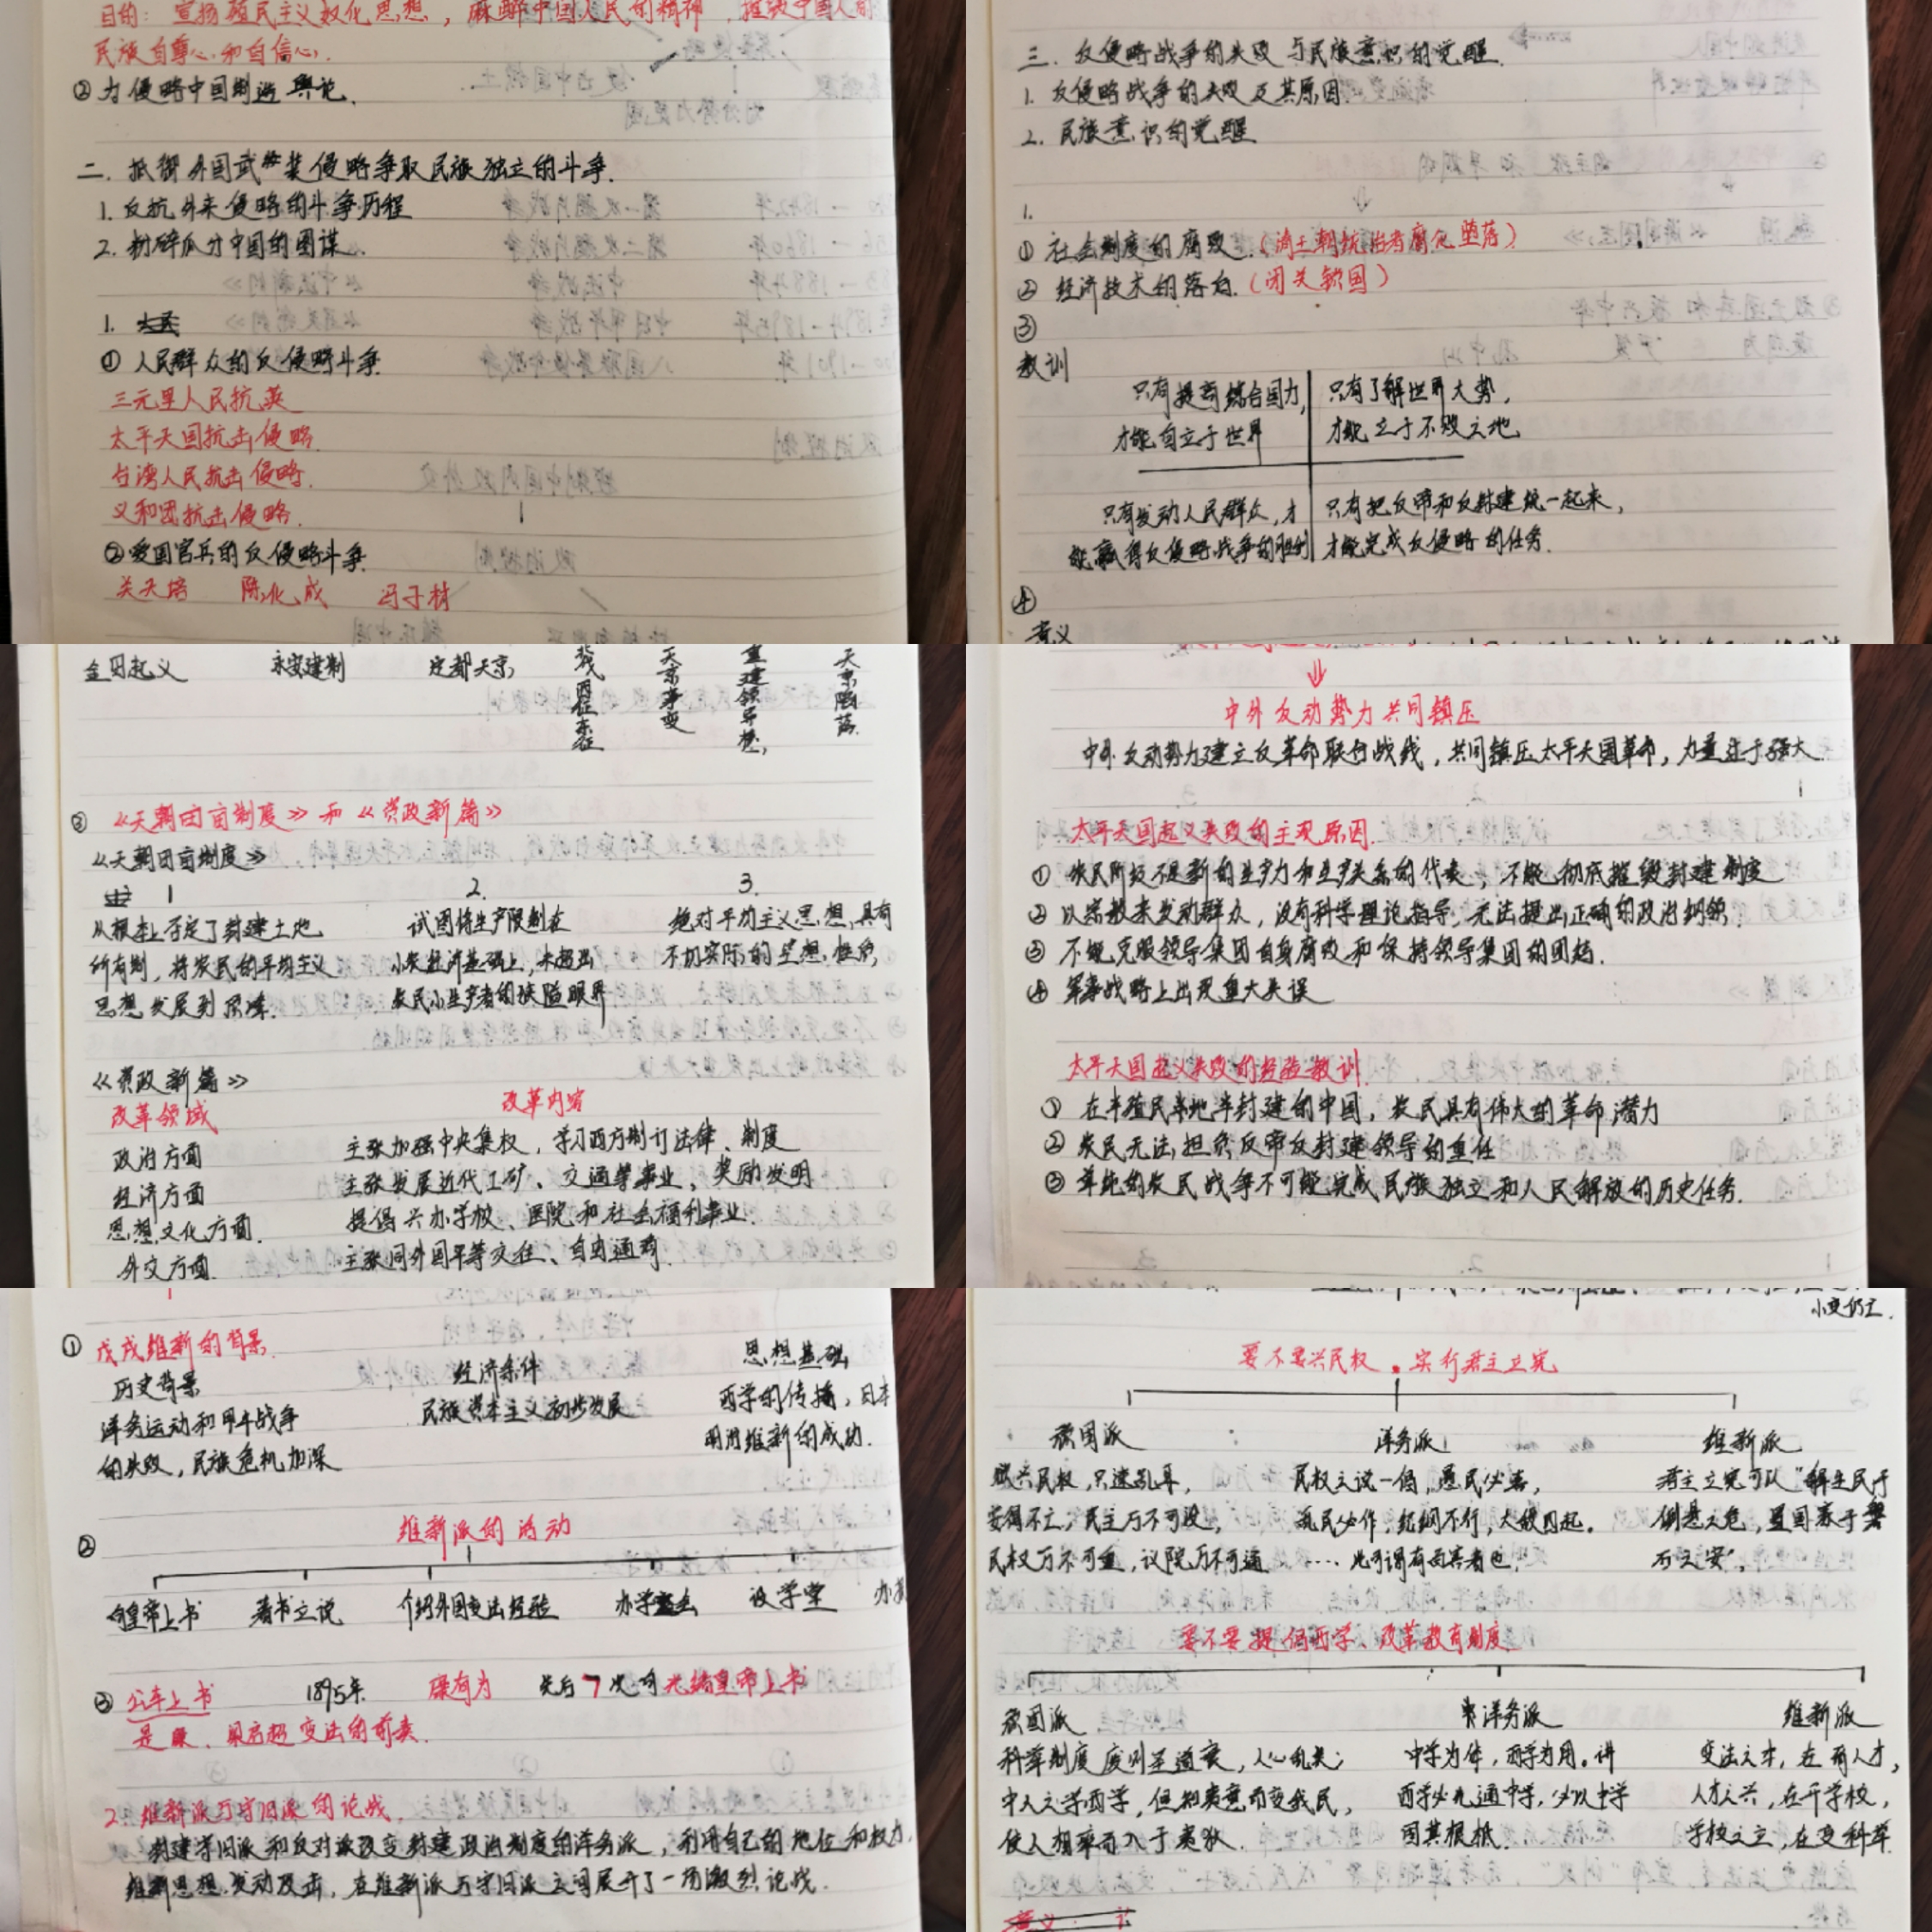 目的：宣扬殖民主义奴化思想，麻醉中国人民的精神，摧毁中国人的
民族自尊心和自信心.
②为侵略中国制造舆论.
二. 抵御外国武装侵略争取民族独立的斗争.
1. 反抗外来侵略的斗争历程
2. 粉碎瓜分中国的图谋.
1.
① 人民群众的反侵略斗争.
三元里人民抗英
太平天国抗击侵略.
台湾人民抗击侵略.
义和团抗击侵略.
②爱国官兵的反侵略斗争.
关天培 陈化成 冯子材
三. 反侵略战争的失败与民族意识的觉醒.
1. 反侵略战争的失败及其原因.
2. 民族意识的觉醒
1.
① 社会制度的腐败.（清王朝统治者腐化堕落）
② 经济技术的落后.（闭关锁国）
③
教训
只有提高综合国力， 只有了解世界大势，
才能自立于世界 才能立于不败之地
只有发动人民群众，才 只有把反帝和反封建统一起来，
能赢得反侵略战争的胜利 才能完成反侵略的任务.
④
意义
金田起义 永安建制 定都天京， 北伐西征东征 天京事变 重建领导 天京陷落.
③ 《天朝田亩制度》和《资政新篇》
《天朝田亩制度》
1 2. 3.
从根本上否定了封建土地 试图将生产限制在 绝对平均主义思想，具有
所有制，将农民的平均主义 小农经济基础上，未超出 不切实际的空想性质，
思想发展到顶峰. 农民小生产者的狭隘眼界
《资政新篇》
改革领域 改革内容
政治方面 主张加强中央集权，学习西方制订法律、制度
经济方面 主张发展近代工矿、交通等事业，奖励发明
思想文化方面. 提倡兴办学校、医院和社会福利事业.
外交方面. 主张同外国平等交往、自由通商.
中外反动势力共同镇压
中外反动势力建立反革命联合战线，共同镇压太平天国革命，力量过于强大.
太平天国起义失败的主观原因.
① 农民阶级不是新的生产力和生产关系的代表，不能彻底摧毁封建制度
② 以宗教来发动群众，没有科学理论指导，无法提出正确的政治纲领.
③ 不能克服领导集团自身腐败和保持领导集团的团结.
④ 军事战略上出现重大失误
太平天国起义失败的经验教训.
① 在半殖民半地半封建的中国，农民具有伟大的革命潜力
② 农民无法担负反帝反封建领导的重任
③ 单纯的农民战争不可能完成民族独立和人民解放的历史任务.
① 戊戌维新的背景.
历史背景 经济条件 思想基础
洋务运动和甲午战争 民族资本主义初步发展 西学的传播，日本
的失败，民族危机加深 明治维新的成功.
② 维新派的活动
向皇帝上书 著书立说 介绍外国变法经验 办学会 设学堂 办
③ 公车上书 1895年 康有为 先后7次向光绪皇帝上书
是康、梁启超变法的前奏.
2. 维新派与守旧派的论战.
封建守旧派和反对派改变封建政治制度的洋务派，利用自己的地位和权力，
维新思想发动攻击，在维新派与守旧派之间展开了一场激烈论战.
小变仍亡.
要不要兴民权。实行君主立宪
顽固派 洋务派 维新派
振兴民权，只速乱耳， 民权之说一倡，愚民必喜， 君主立宪可以“解生民于
安得不亡，民主万不可设， 乱民必作，纪纲不行，大乱四起. 倒悬之危，置国家于磐
民权万不可重，议院万不可通 ····此可谓有百害者也. 石之安”.
要不要提倡西学、改革教育制度
顽固派 洋务派 维新派
科举制度废则圣道衰，人心乱矣； 中学为体，西学为用。讲 变法之本，在育人才，
中人之学西学， 西学必先通中学，必以中学 人才之兴，在开学校，
使人相率而入于夷狄. 固其根柢. 学校之立，在变科举.